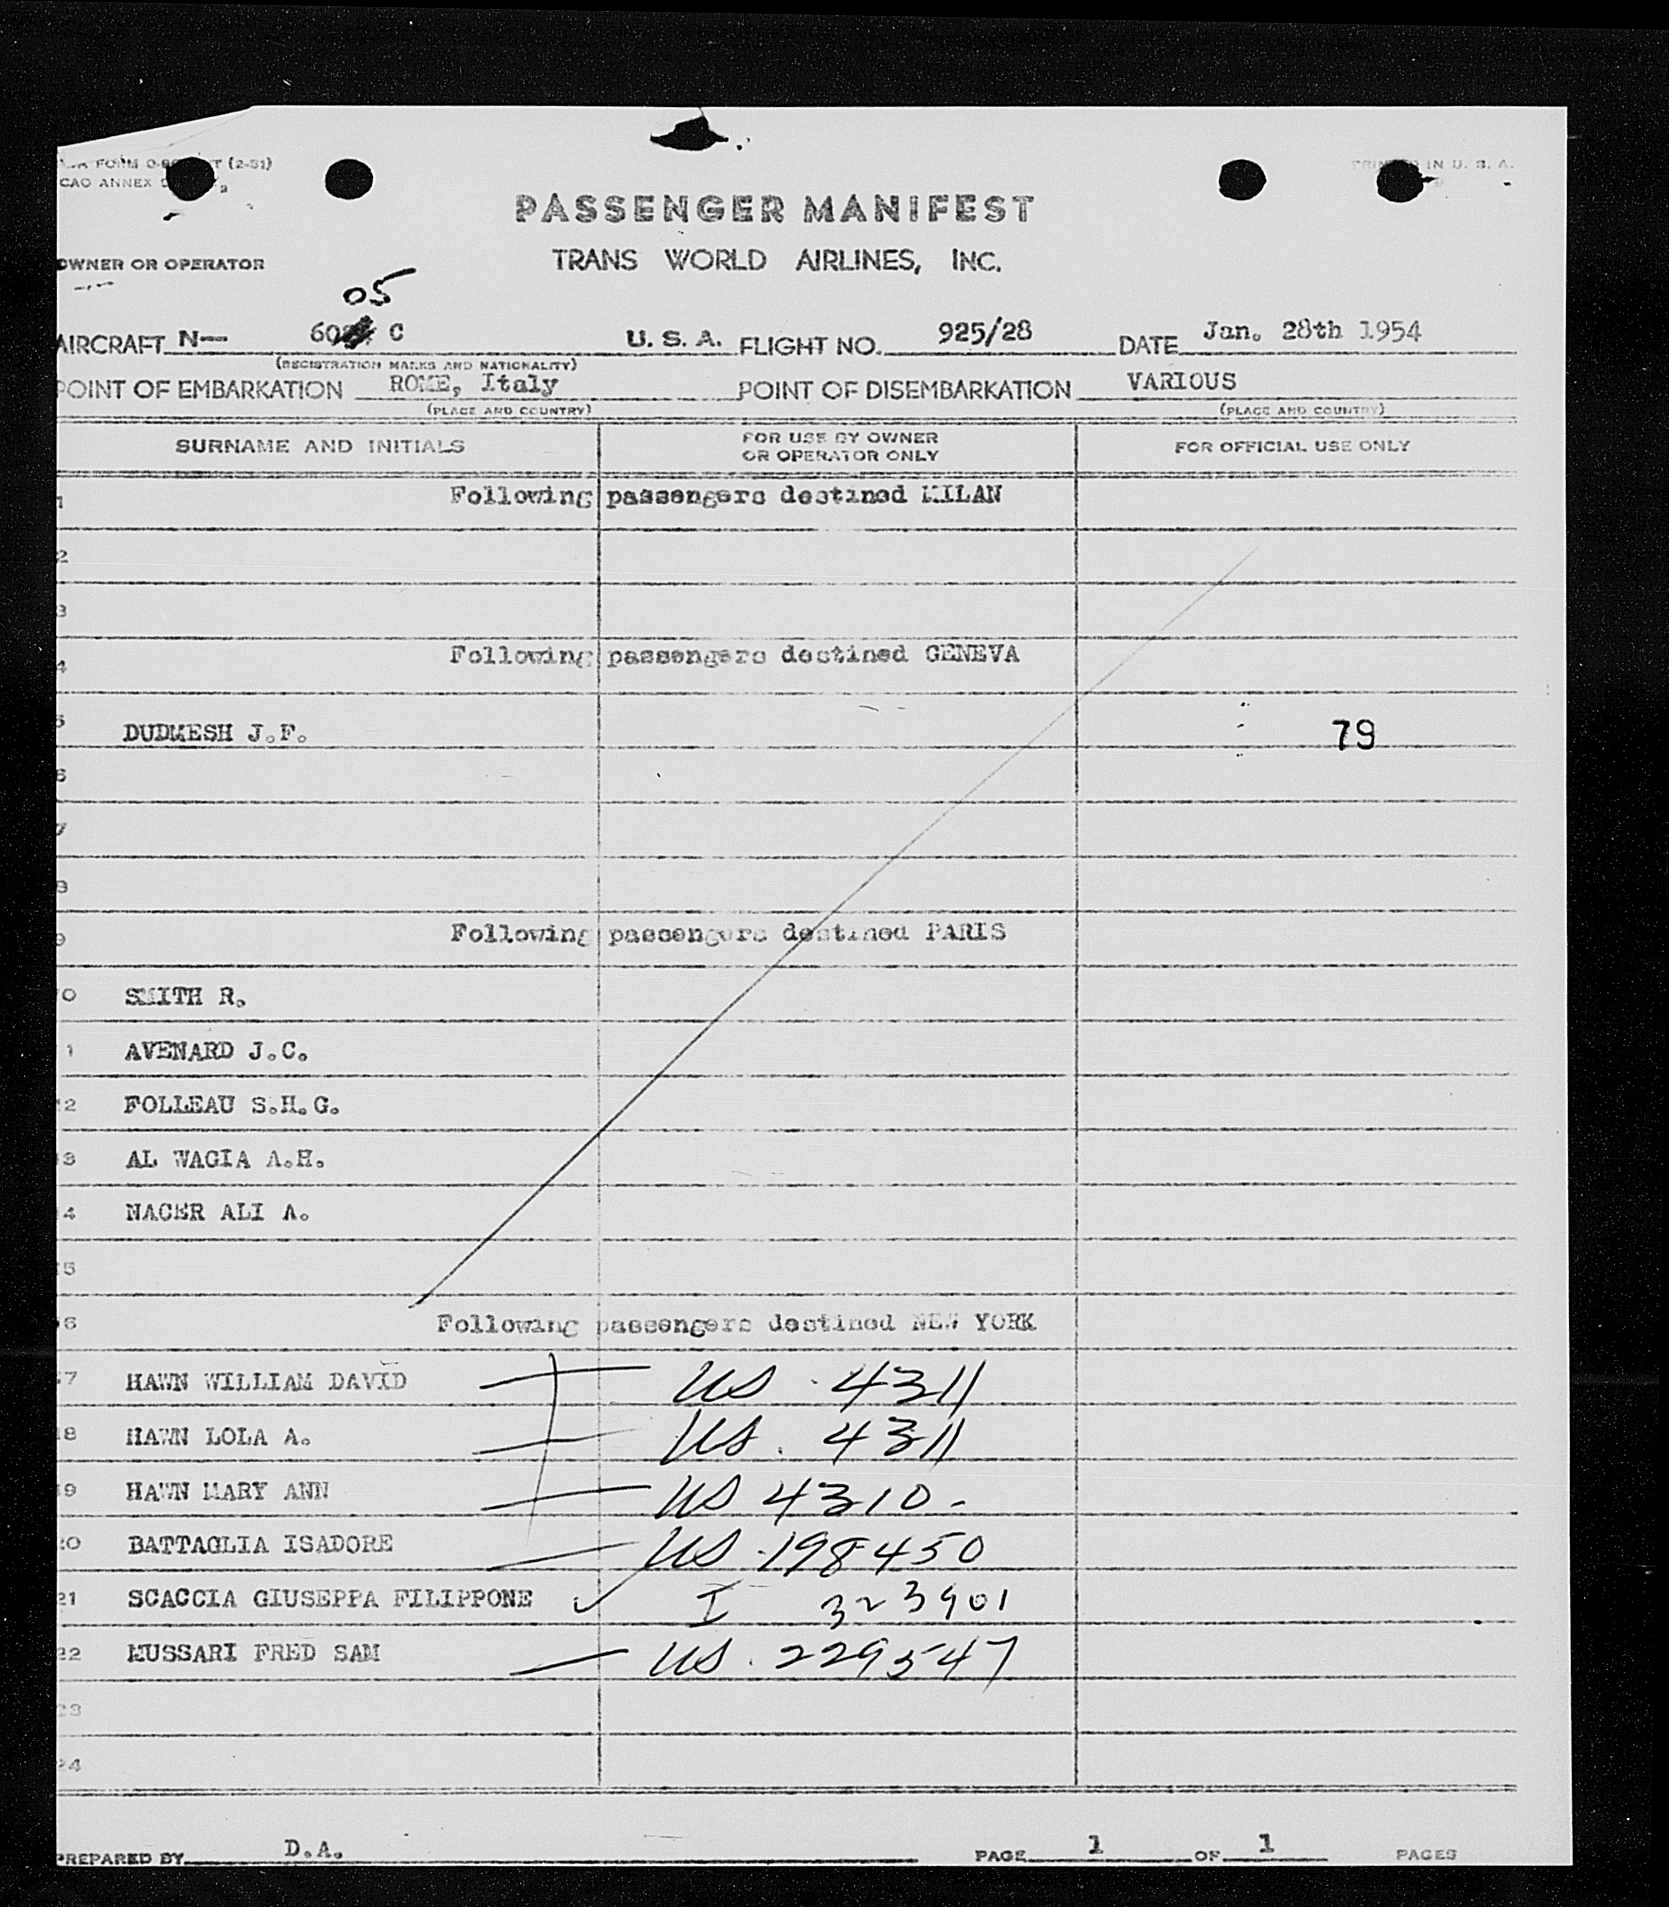 FORM (2-51)
CAO ANNEX
PRINTED IN U. S. A.
PASSENGER MANIFEST
OWNER OR OPERATOR
TRANS WORLD AIRLINES, INC.
05
AIRCRAFT N— 60 C U. S. A. FLIGHT NO. 925/28 DATE Jan. 28th 1954
(REGISTRATION MARKS AND NATIONALITY)
POINT OF EMBARKATION ROME, Italy POINT OF DISEMBARKATION VARIOUS
(PLACE AND COUNTRY) (PLACE AND COUNTRY)
SURNAME AND INITIALS FOR USE BY OWNER OR OPERATOR ONLY FOR OFFICIAL USE ONLY
1 Following passengers destined MILAN
2
3
4 Following passengers destined GENEVA
5 DUDMESH J.F. 79
6
7
8
9 Following passengers destined PARIS
10 SMITH R.
11 AVENARD J.C.
12 FOLLEAU S.H.G.
13 AL WAGIA A.H.
14 NACER ALI A.
15
16 Following passengers destined NEW YORK
17 HAWN WILLIAM DAVID US. 4311
18 HAWN LOLA A. US. 4311
19 HAWN MARY ANN US 4310-
20 BATTAGLIA ISADORE US. 198450
21 SCACCIA GIUSEPPA FILIPPONE I 323901
22 MUSSARI FRED SAM US. 229547
23
24
PREPARED BY D.A. PAGE 1 OF 1 PAGES